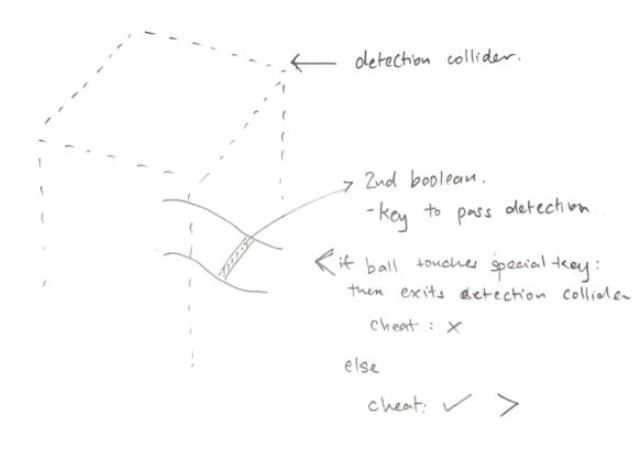 detection collider.
2nd boolean.
-key to pass detection
<if ball touches special key:
then exits detection collider
cheat : ×
else
cheat: ✓ >